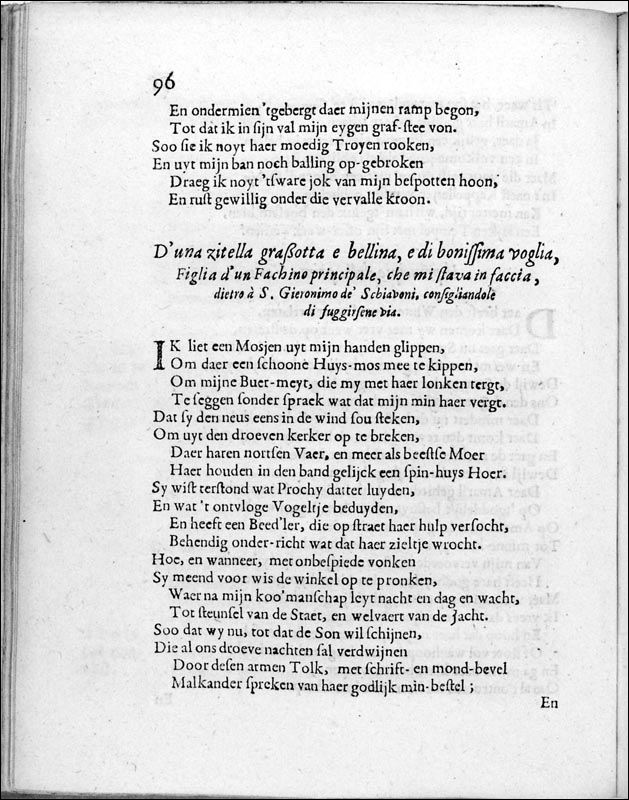 96
En ondermien 'tgebergt daer mijnen ramp begon,
Tot dat ik in ſijn val mijn eygen graf-ſtee von.
Soo ſie ik noyt haer moedig Troyen rooken,
En uyt mijn ban noch balling op-gebroken
Draeg ik noyt 'tſware jok van mijn beſpotten hoon,
En ruſt gewillig onder die vervalle kroon.
D'una zitella graßotta e bellina, e di boniſſima voglia,
Figlia d'un Fachino principale, che mi ſtava in faccia,
dietro à S. Gieronimo de' Schiavoni, conſigliandole
di fuggirſene via.
IK liet een Mosjen uyt mijn handen glippen,
Om daer een ſchoone Huys-mos mee te kippen,
Om mijne Buer-meyt, die my met haer lonken tergt,
Te ſeggen ſonder ſpraek wat dat mijn min haer vergt.
Dat ſy den neus eens in de wind ſou ſteken,
Om uyt den droeven kerker op te breken,
Daer haren nortſen Vaer, en meer als beeſtſe Moer
Haer houden in den band gelijck een ſpin-huys Hoer.
Sy wiſt terſtond wat Prochy datter luyden,
En wat 't ontvloge Vogeltje beduyden,
En heeft een Beed'ler, die op ſtraet haer hulp verſocht,
Behendig onder-richt wat dat haer zieltje wrocht.
Hoe, en wanneer, met onbeſpiede vonken
Sy meend voor wis de winkel op te pronken,
Waer na mijn koo'manſchap leyt nacht en dag en wacht,
Tot ſteunſel van de Staet, en welvaert van de Jacht.
Soo dat wy nu, tot dat de Son wil ſchijnen,
Die al ons droeve nachten ſal verdwijnen
Door deſen armen Tolk, met ſchrift- en mond-bevel
Malkander ſpreken van haer godlijk min-beſtel;
En